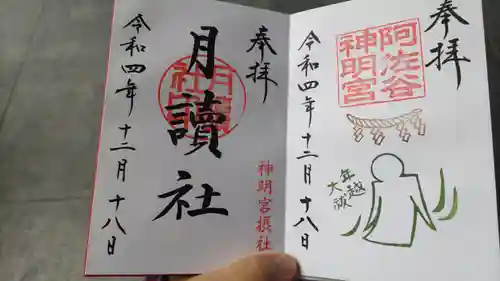 奉拝
阿佐谷
神明宮
年越
大祓
令和四年十二月十八日
奉拝
月讀社
神明宮摂社
令和四年十二月十八日